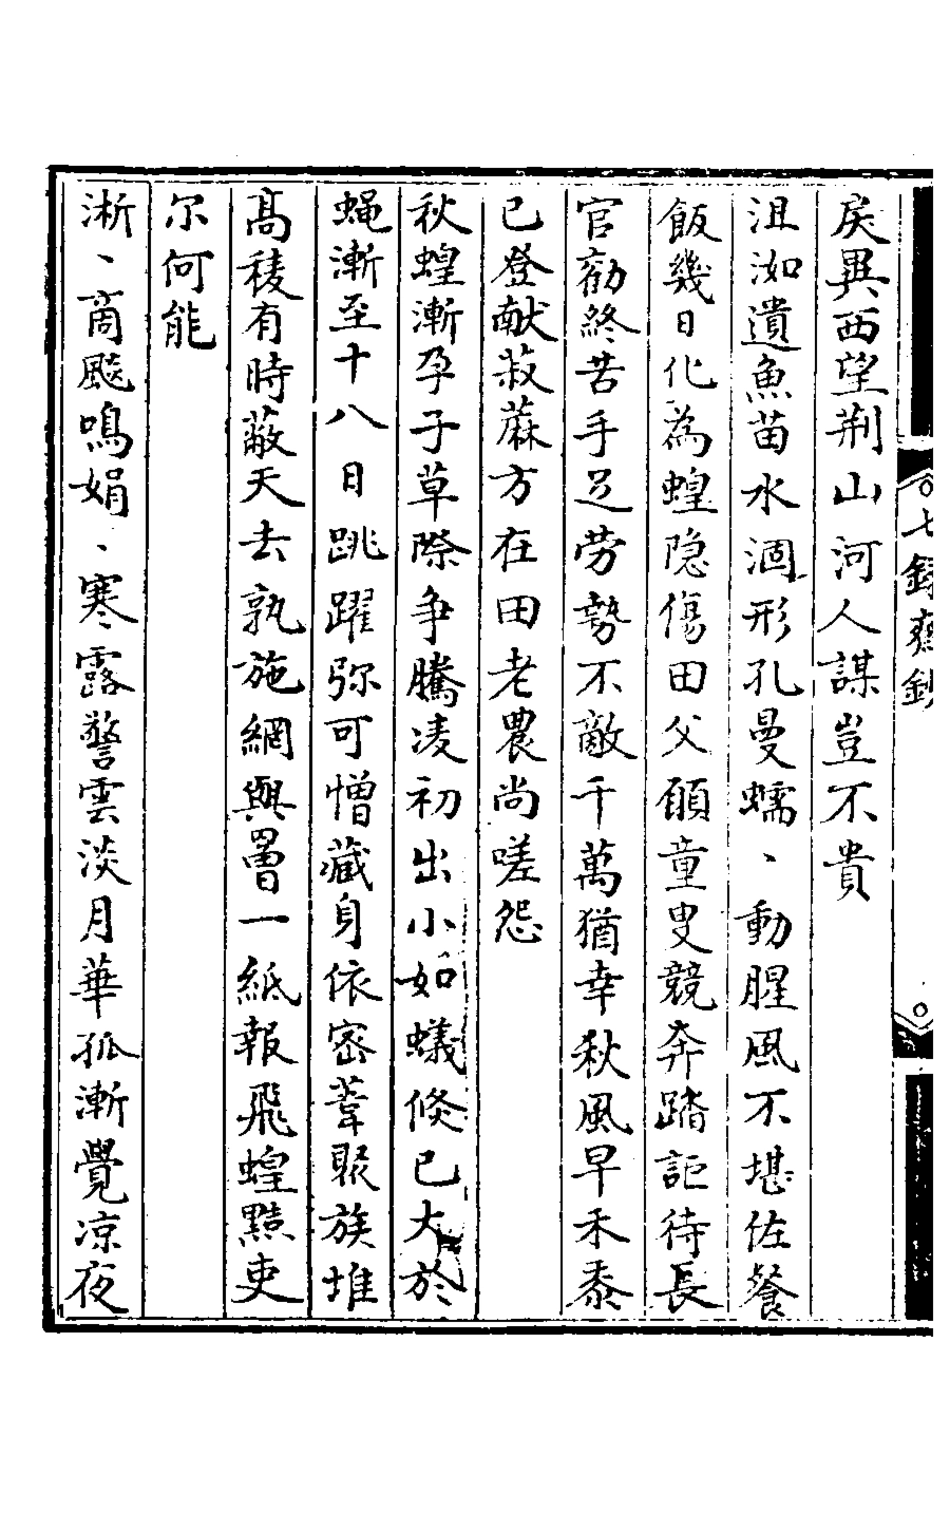 七録齋鈔
戾異西望荆山河人謀豈不貴
沮洳遺魚苗水涸形孔曼蠕、動腥風不堪佐餐
飯幾日化為蝗隐傷田父頋童叟競奔踏詎待長
官勸終苦手足劳勢不敵千萬猶幸秋風早禾黍
已登献菽蔴方在田老農尚嗟怨
秋蝗漸孕子草際争騰凌初出小如蟻倏已大於
蝇漸至十八日跳躍弥可憎藏身依密葦聚族堆
髙稜有時蔽天去孰施網與罾一紙報飛蝗黠吏
尔何能
淅、商飈鳴娟、寒露警雲淡月華孤漸覺凉夜